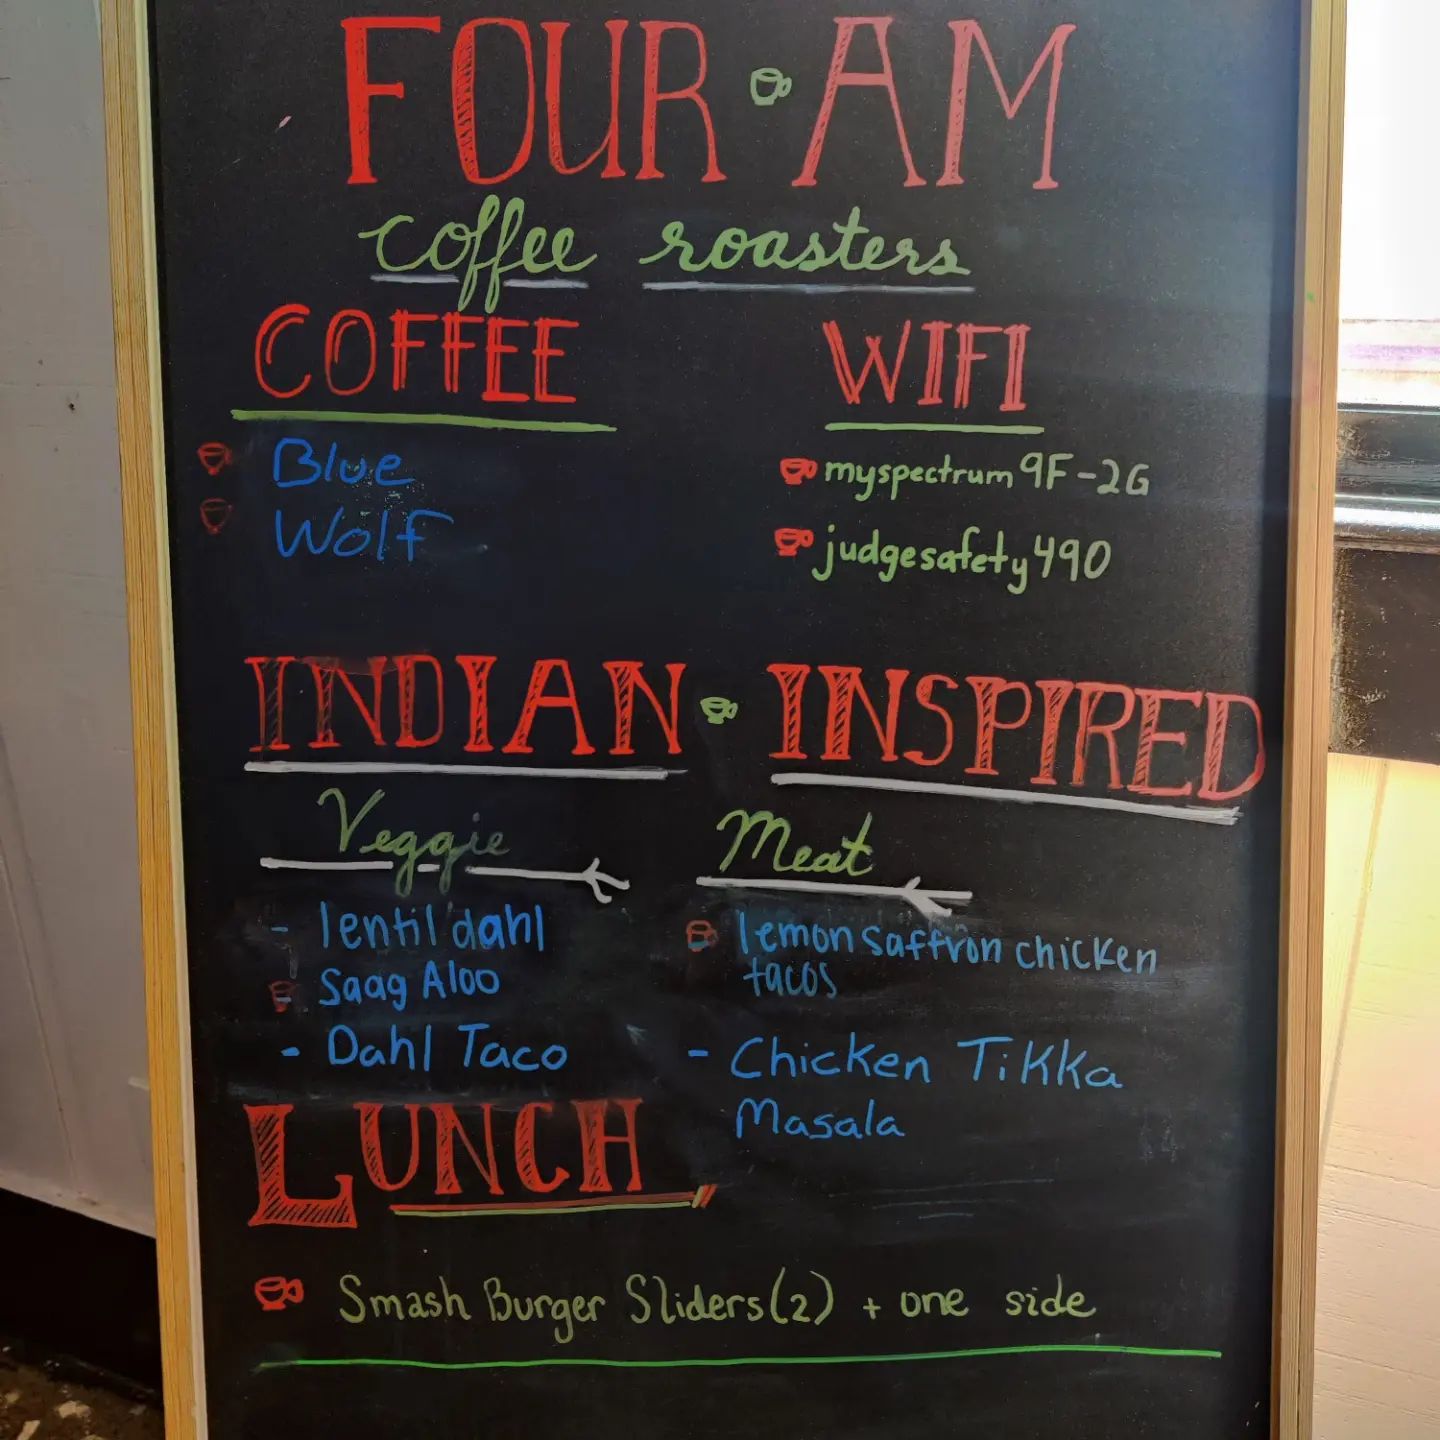 FOUR AM
coffee roasters
COFFEE
Blue
Wolf
WIFI
myspectrum9F-2G
judgesafety490
INDIAN INSPIRED
Veggie
- lentil dahl
- Saag Aloo
- Dahl Taco
Meat
lemon saffron chicken
tacos
- Chicken Tikka
Masala
LUNCH
Smash Burger Sliders(2) + one side